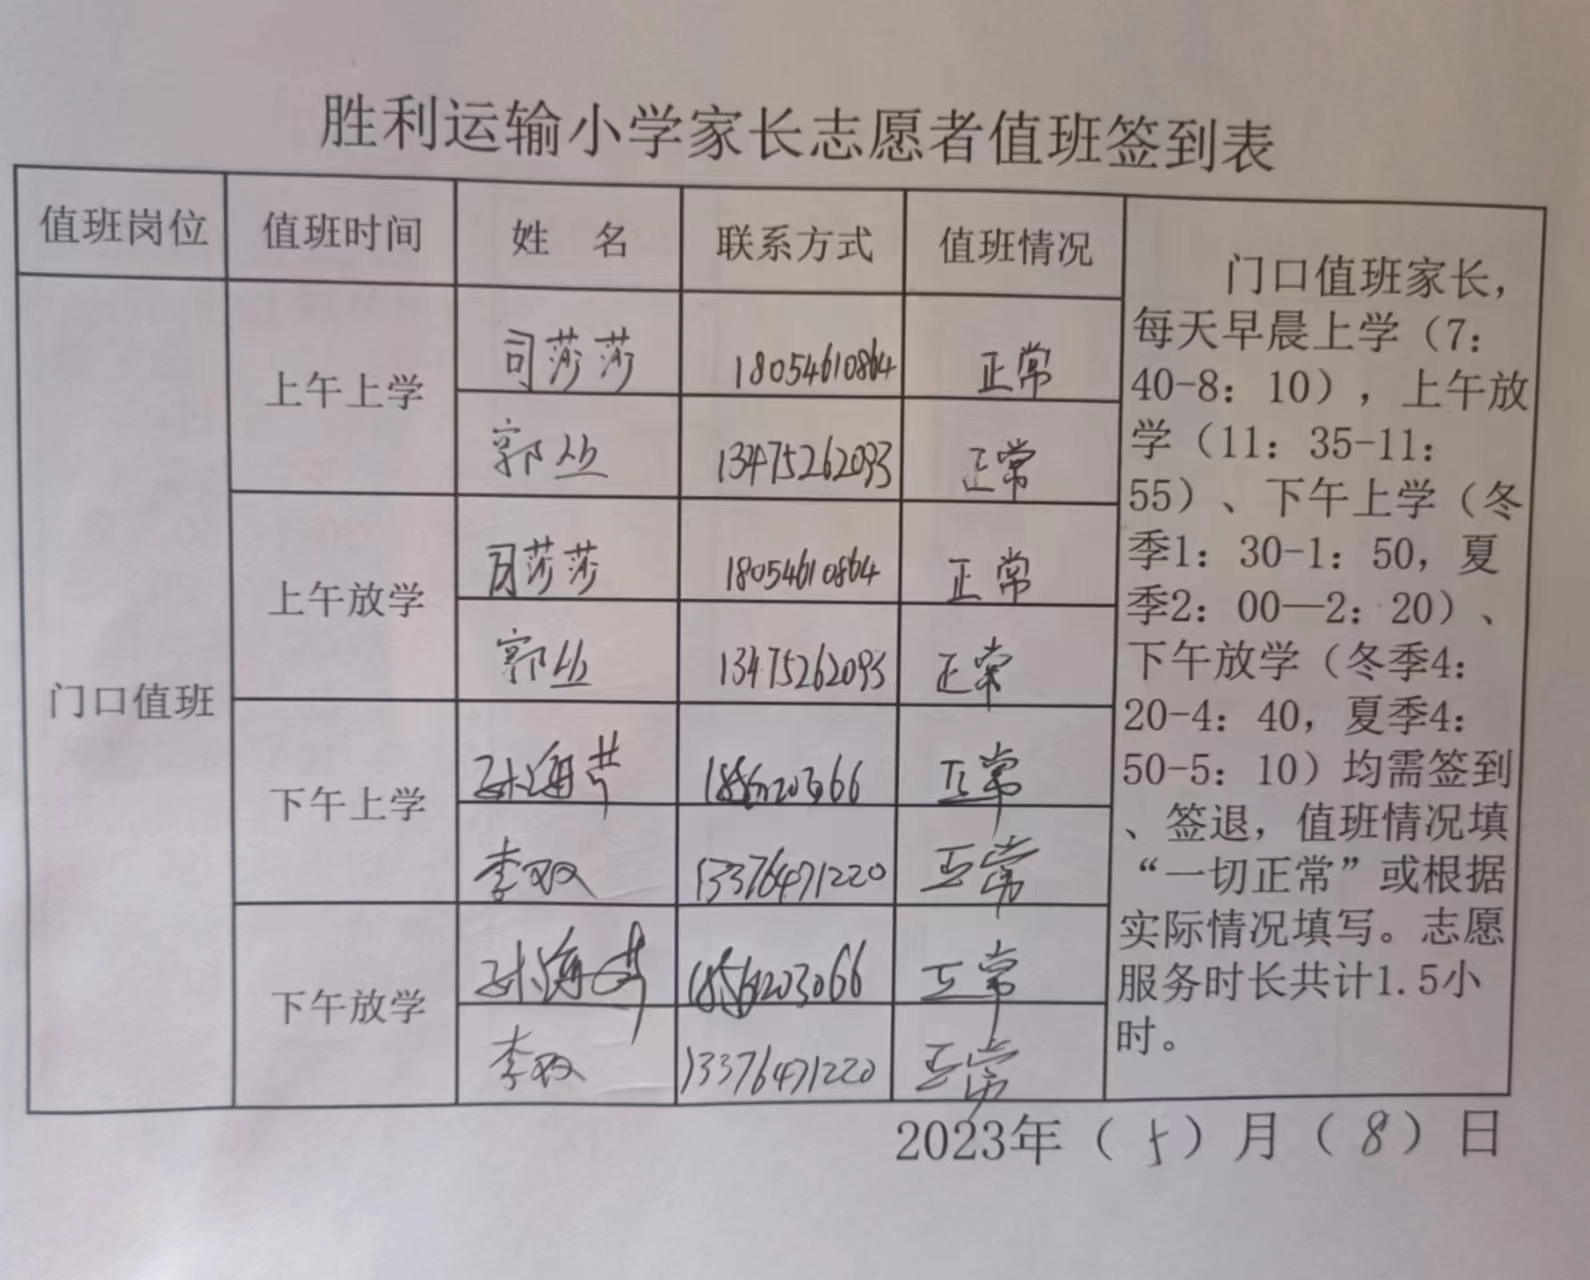 胜利运输小学家长志愿者值班签到表
值班岗位 值班时间 姓 名 联系方式 值班情况
门口值班
上午上学
司莎莎 18054610864 正常
郭丛 13475262093 正常
上午放学
司莎莎 18054610864 正常
郭丛 13475262093 正常
下午上学
孙海 正常
李双 13376471220 正常
下午放学
孙海 正常
李双 13376471220 正常
门口值班家长，
每天早晨上学（7：
40-8：10），上午放
学（11：35-11：
55）、下午上学（冬
季1：30-1：50，夏
季2：00—2：20）、
下午放学（冬季4：
20-4：40，夏季4：
50-5：10）均需签到
、签退，值班情况填
“一切正常”或根据
实际情况填写。志愿
服务时长共计1.5小
时。
2023年（5）月（8）日